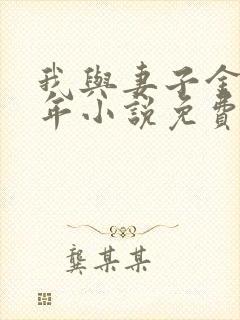 我與妻子金
年小說免費
龔某某